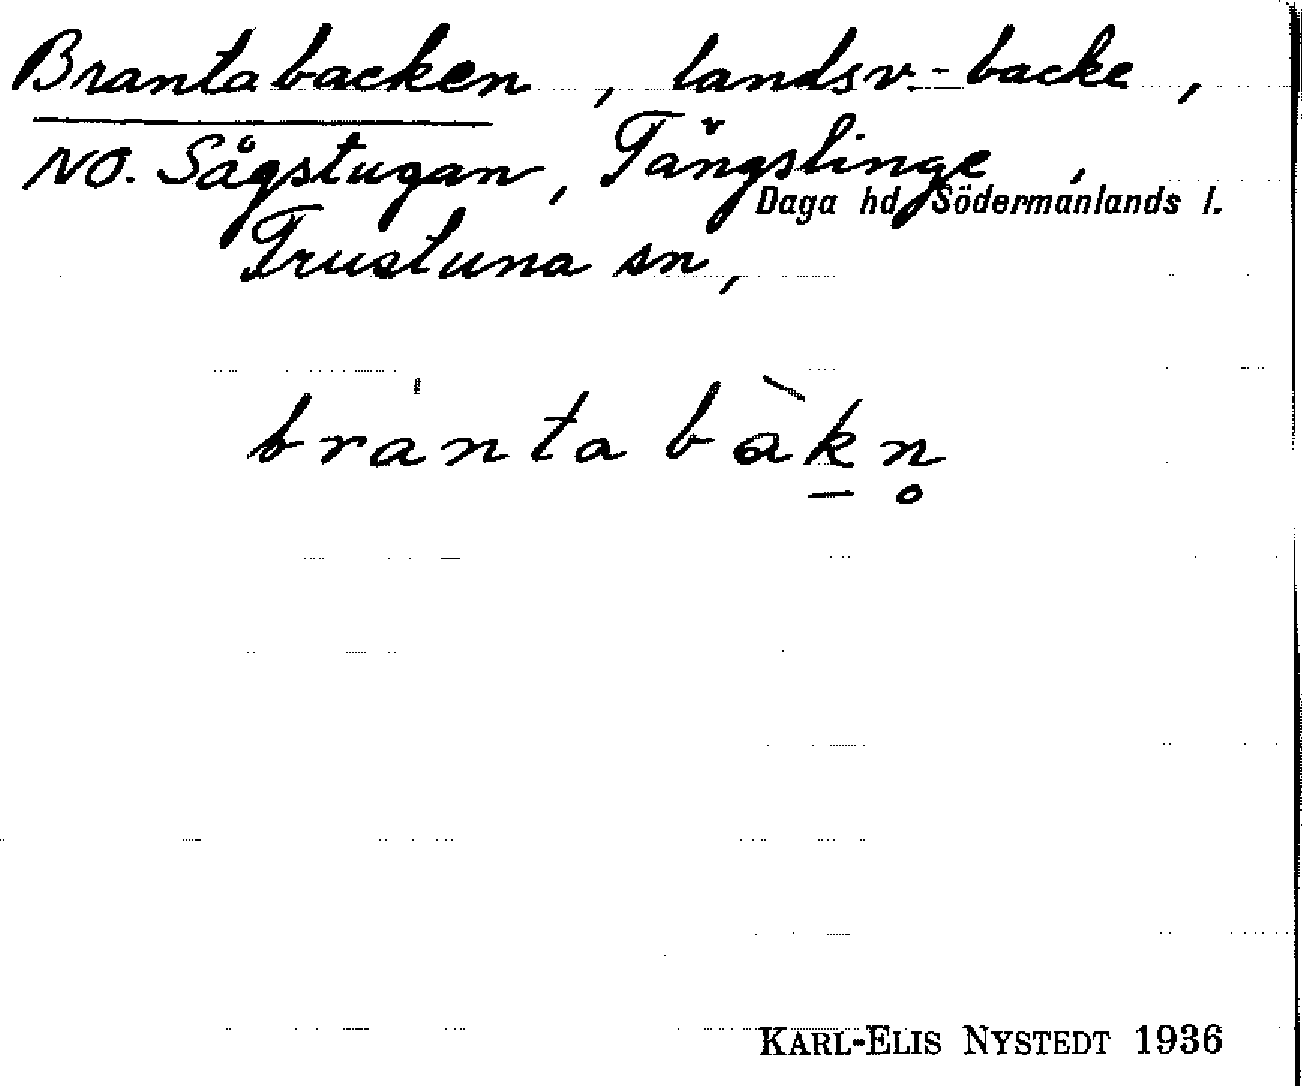 Brantabacken, landsv.-backe,
NO. Sågstugan, Tängslinge,
Daga hd, Södermanlands l.
Frustuna sn,
brantabàkn̥
KARL-ELIS NYSTEDT 1936